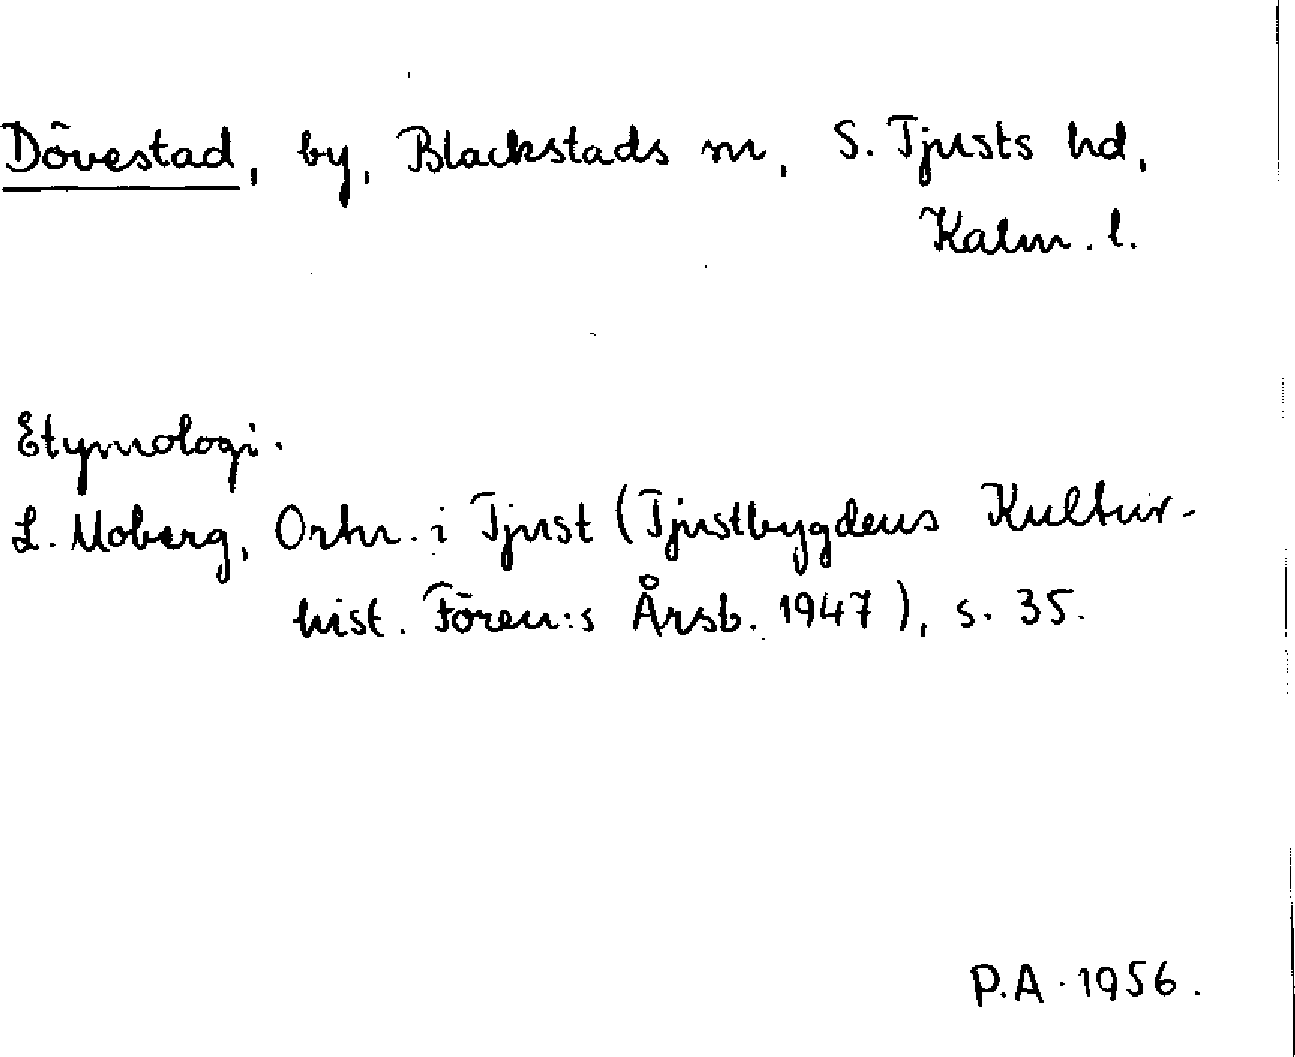 Dövestad, by, Blackstads sn, S. Tjusts hd,
Kalm. l.
Etymologi.
L. Moberg, Ortn. i Tjust (Tjustbygdens Kultur-
hist. Fören:s Årsb. 1947), s. 35.
P.A. 1956.